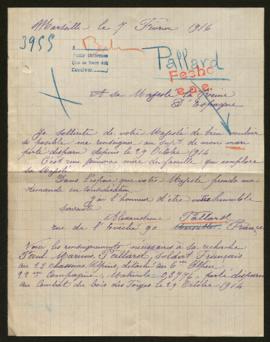 Marseille le 7 Février 1916
3955
Pallard
Fecho
A Sa Majesté la Reine
d'Espagne
Je sollicite de votre Majesté de bien vouloir
si possible me renseigner au sujet de mon mari
porté disparu depuis le 29 Octobre 1914
C'est une pauvre mère de famille qui implore
sa Majesté
Dans l'espoir que votre Majesté prendra ma
demande en considération
j'ai l'honneur d'être votre humble
servante
Alexandrine Pallard
rue de l'Evêché 90 Marseille France
Voici les renseignements nécessaires à la recherche
Paul Marius Pallard, soldat Français
au 22 chasseurs Alpins, détaché au 6me Alpin
22me Compagnie, Matricule porté disparu
au Combat du Bois des Forges le 29 Octobre 1914